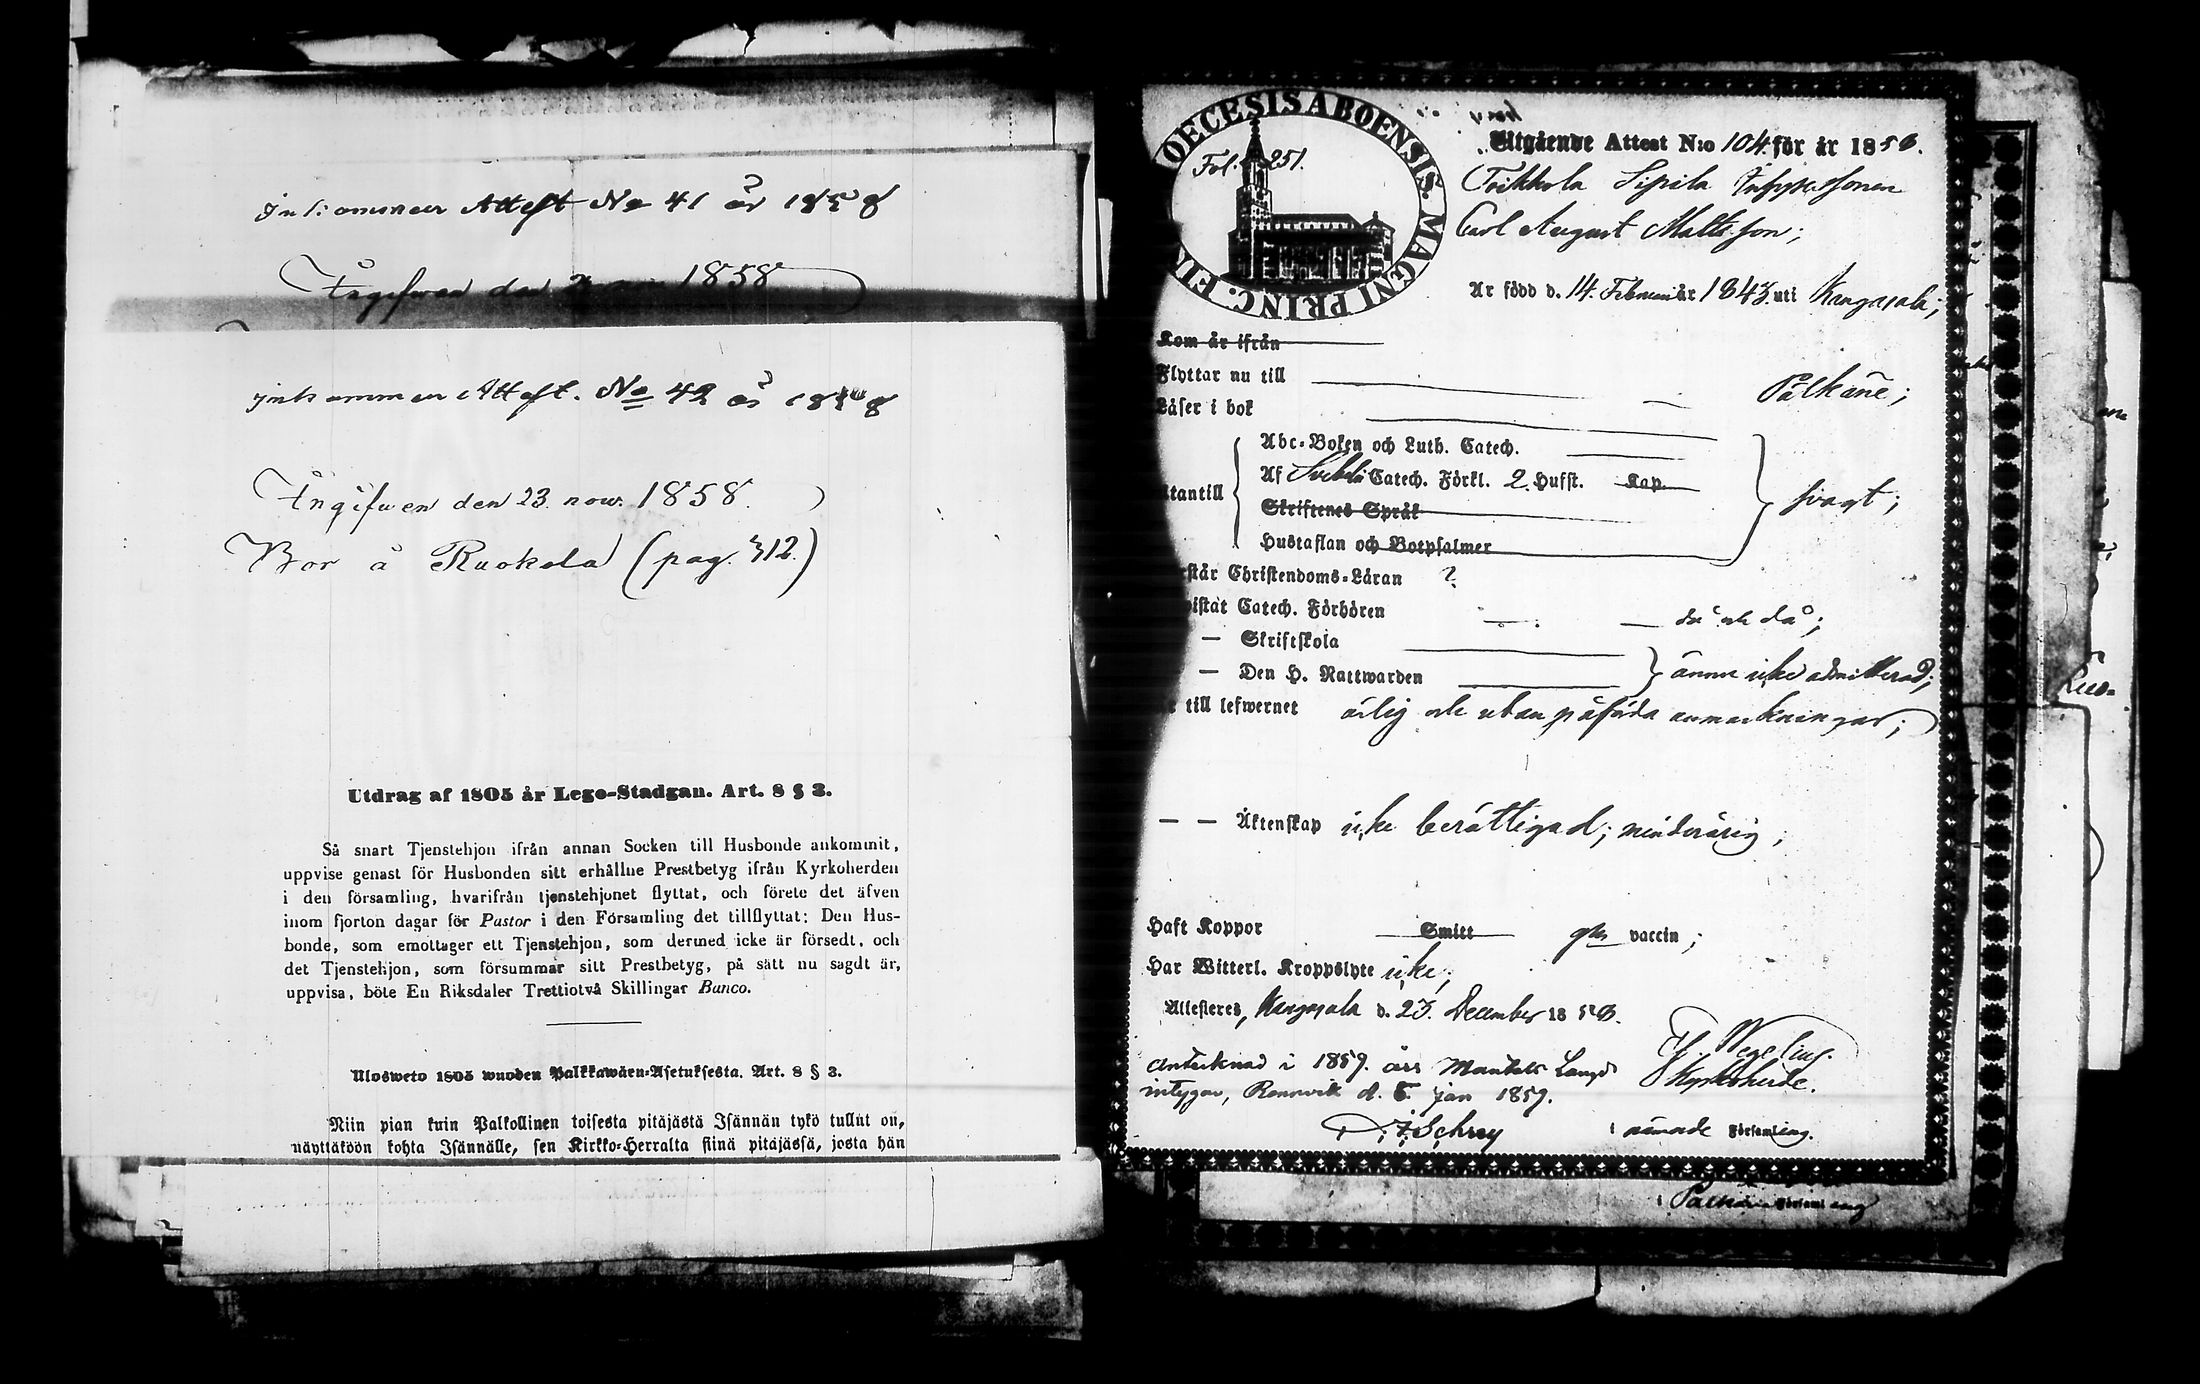 inkommen Attest No 41 år 1858
Ingifwen den 1858
inkommen Attest. No 42 år 1858
Ingifwen den 23. now. 1858.
Bor å Ruokola (pag. 312.)
Utdrag af 1805 år Lego-Stadgan. Art. 8 § 3.
Så snart Tjenstehjon ifrån annan Socken till Husbonde ankommit,
uppvise genast för Husbonden sitt erhållne Prestbetyg ifrån Kyrkoherden
i den församling, hvarifrån tjenstehjonet flyttat, och förete det äfven
inom fjorton dagar för Pastor i den Församling det tillflyttat: Den Hus-
bonde, som emottager ett Tjenstehjon, som dermed icke är försedt, och
det Tjenstehjon, som försummar sitt Prestbetyg, på sätt nu sagdt är,
uppvisa, böte En Riksdaler Trettiotvå Skillingar Banco.
Ulosweto 1805 wuoden Palkkawäen-Asetuksesta. Art. 8 § 3.
Niin pian kuin Palkollinen toisesta pitäjästä Isännän tykö tullut on,
näyttäköön kohta Isännälle, sen Kirkko-Herralta siinä pitäjässä, josta hän
OECESIS ABOENSIS. MAGNI PRINC. FIN
Fol. 251.
Utgående Attest N:o 104. för år 1858.
Toikkola Sipila
Carl August Mattsson;
Är född d. 14. Februari år 1843. uti Kangasala;
Kom år ifrån
Flyttar nu till Pälkäne;
Läser i bok
Abc-Boken och Luth. Catech.
Af Svebelii Catech. Förkl. 2. Hufst. Kap.
utantill svagt;
Skriftenes Språk
Hustaflan och Botpsalmer
står Christendoms-Läran ?
istat Catech. Förhören då och då;
— Skriftskola
— Den H. Nattwarden ännu icke admitterad;
till lefwernet ärlig och utan påförda anmärkningar;
— — Äktenskap icke berättigad; minderårig;
Haft Koppor Smitt gm vaccin;
Har Witterl. Kroppslyte icke;
Attesteres, Kangasala d. 23. December 1858.
Wegelius.
Kyrkoherde.
Antecknad i 1859. års Mantals Längd
intygar, Rennvik d. 5 jan 1859.
Schrey
i nämnde Församling.
i Pälkäne Församling